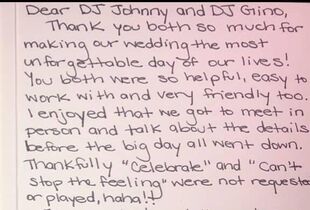 Dear DJ Johnny and DJ Gino,
Thank you both so much for
making our wedding the most
unforgettable day of our lives!
You both were so helpful, easy to
work with and very friendly too.
I enjoyed that we got to meet in
person and talk about the details
before the big day all went down.
Thankfully "Celebrate" and "Can't
stop the feeling" were not requested
or played, haha!!